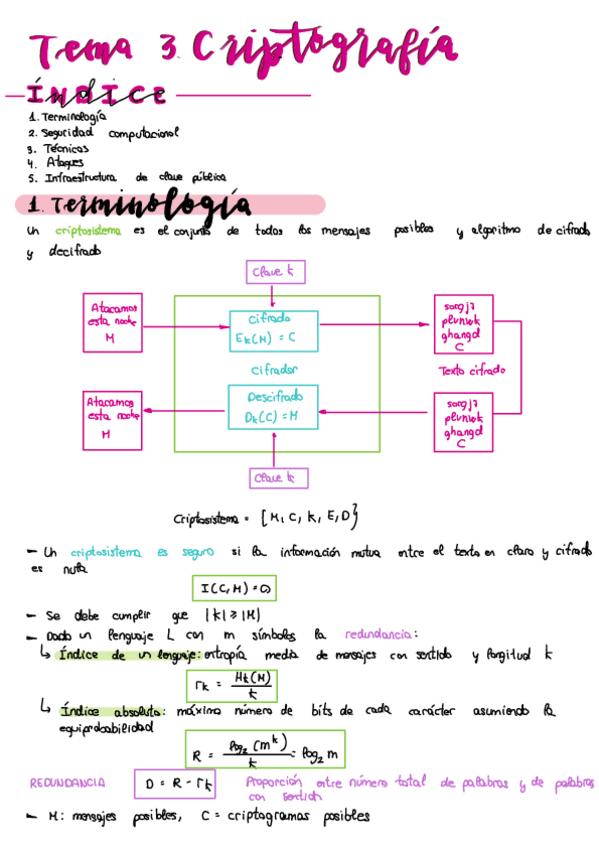 Tema 3. Criptografía
ÍNDICE
1. Terminología
2. Seguridad computacional
3. Técnicas
4. Ataques
5. Infraestructura de clave pública
1. Terminología
Un criptosistema es el conjunto de todos los mensajes posibles y algoritmo de cifrado
y decifrado
Clave k
Atacamos
esta noche
M
Cifrado
Ek(M) = C
Cifrador
Texto cifrado
Atacamos
esta noche
M
Descifrado
Dk(C) = M
C
Clave k
Criptosistema = {M, C, K, E, D}
- Un criptosistema es seguro si la información mutua entre el texto en claro y cifrado
es nula
I(C, M) = 0
- Se debe cumplir que |k| ≥ |M|
- Dado un lenguaje L con m símbolos la redundancia:
↳ Índice de un lenguaje: entropía media de mensajes con sentido y longitud k
rk = Hk(M) / k
↳ Índice absoluto: máximo número de bits de cada carácter asumiendo la
equiprobabilidad
R = log2 (m^k) / k = log2 m
REDUNDANCIA D = R - rk Proporción entre número total de palabras y de palabras
con sentido
- M: mensajes posibles, C = criptogramas posibles